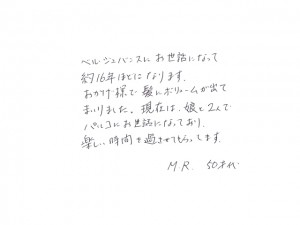 ベルジュバンスにお世話になって
約16年ほどになります。
おかげ様で髪にボリュームが出て
まいりました。現在は、娘と2人で
パルコにお世話になっており
楽しい時間を過させてもらってます。
M.R. 50才代